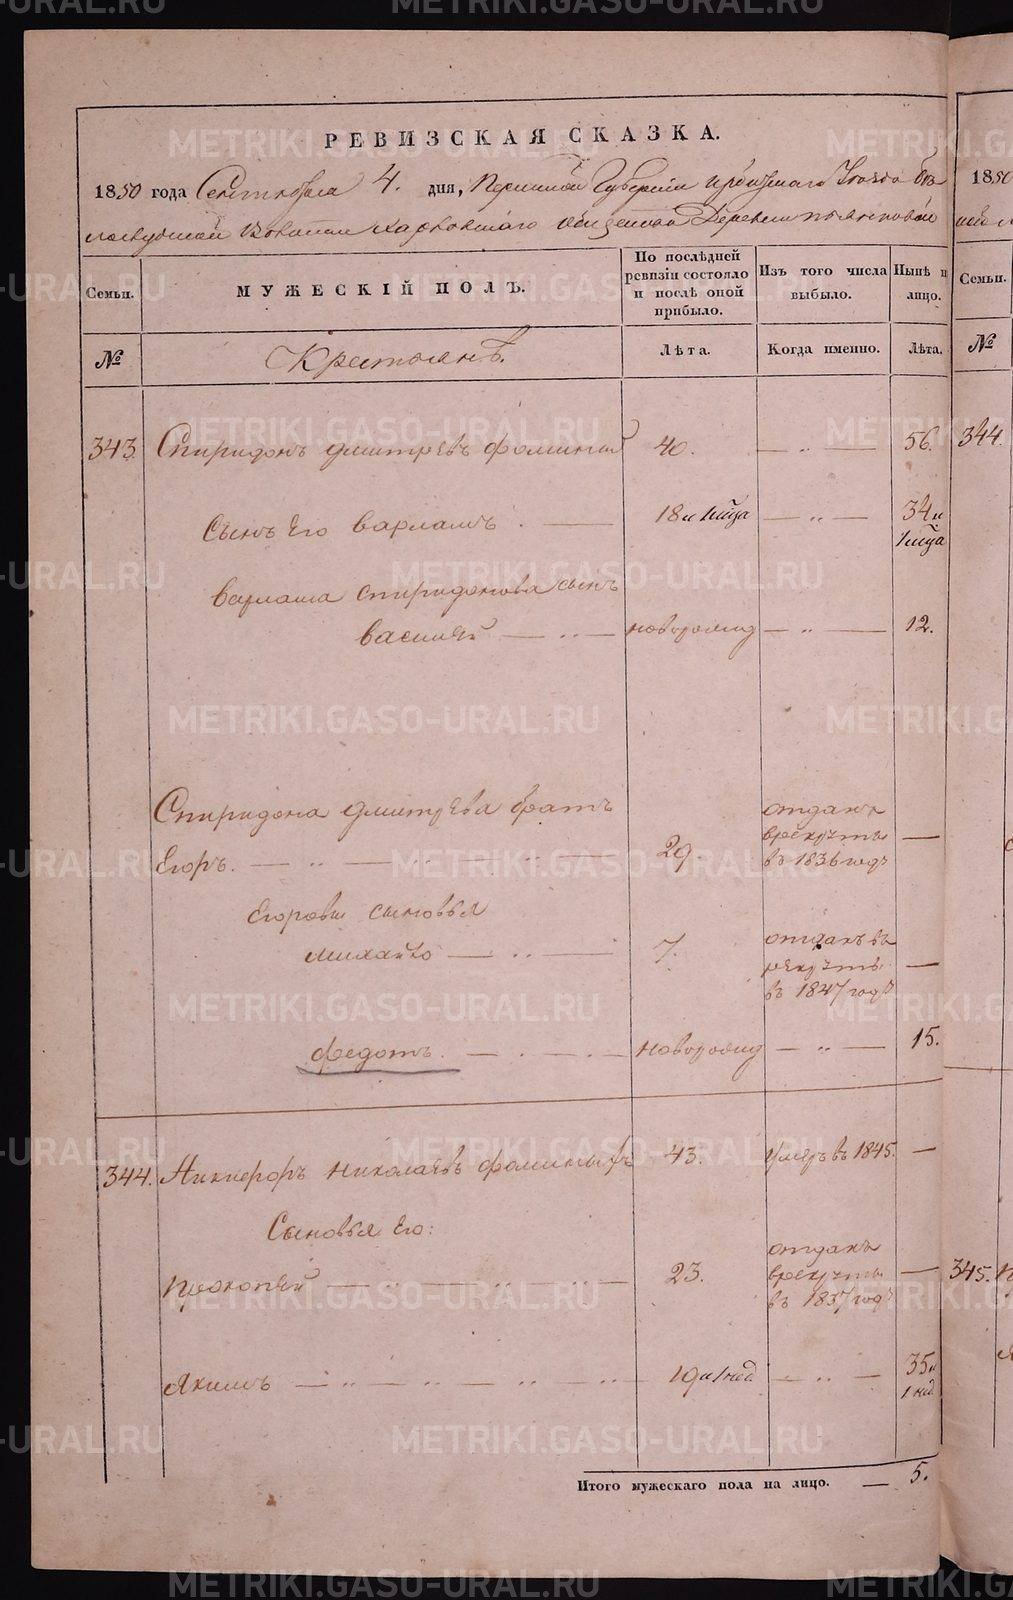 METRIKI.GASO-URAL.RU
РЕВИЗСКАЯ СКАЗКА.
1850 года Сентября 4. дня, Пермской Губернии Ирбитскаго Уезда
Волости Харловскаго общества Деревни
Семьи.
МУЖЕСКІЙ ПОЛЪ.
По послѣдней ревизіи состояло и послѣ оной прибыло.
Изъ того числа выбыло.
Нынѣ на лицо.
№
Крестьянъ.
Лѣта.
Когда именно.
Лѣта.
343. Спиридонъ Дмитревъ Фоминыхъ 40. — „ — 56.
Сынъ Его Варламъ. — 18 и 1 мца — „ — 34 и 1 мца
Варлама Спиридонова сынъ
Василей — „ — новорожд — „ — 12.
Спиридона Дмитрева братъ
Егоръ. — „ — „ — „ — 29. отданъ врекруты въ 1836 годъ —
Егоровы сыновья
Михайло — „ — 7. отданъ въ рекруты въ 1847 годъ —
Федотъ. — „ — новорожд — „ — 15.
344. Никифоръ Николаевъ Фоминыхъ 43. Умеръ въ 1845. —
Сыновья Его:
Прокопей — „ — „ — „ — 23. отданъ врекруты въ 1837 годъ —
Якимъ — „ — „ — „ — „ 19 и 1 нед — „ — 35 и 1 нед
Итого мужескаго пола на лицо. — 5.
1850
Семьи.
№
344.
345.